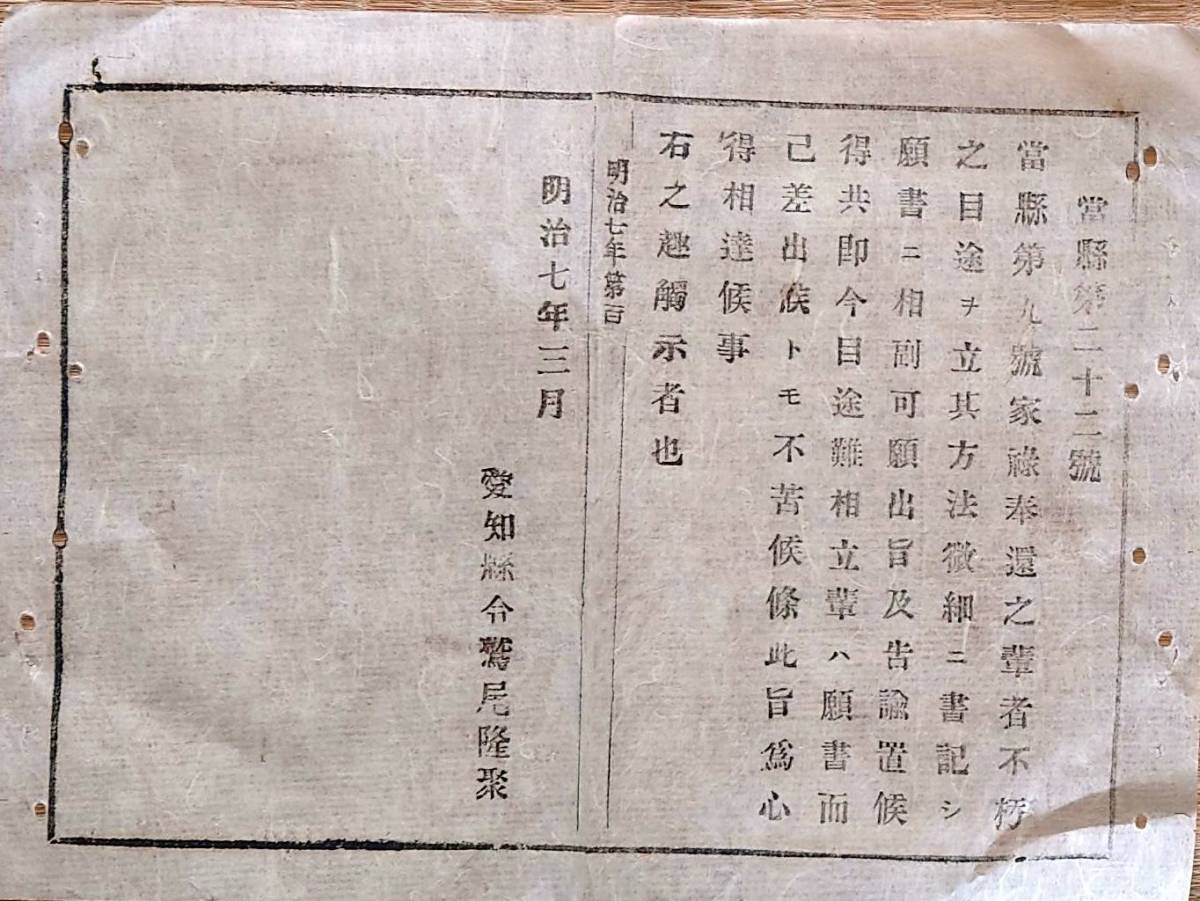 當縣第二十二號
當縣第九號家祿奉還之輩者不朽
之目途ヲ立其方法微細ニ書記シ
願書ニ相副可願出旨及告諭置候
得共即今目途難相立輩ハ願書而
己差出候トモ不苦候條此旨爲心
得相達候事
右之趣觸示者也
明治七年第百
明治七年三月
愛知縣令鷲尾隆聚